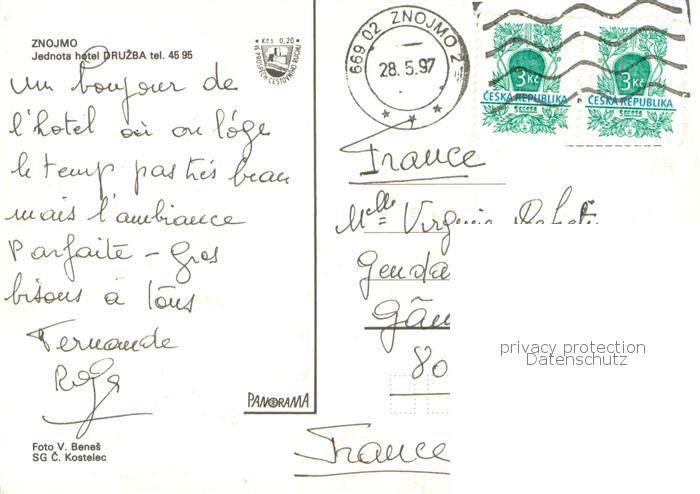 ZNOJMO
Jednota hotel DRUŽBA tel. 45 95
Kčs 0,20
VE PROSPĚCH CESTOVNÍHO RUCHU
un bonjour de
l'hotel où on lóge
le temp pas trés beau
mais l'ambiance
Parfaite - Gros
bisous à tous
Fernande
Foto V. Beneš
SG Č. Kostelec
PANORAMA
669 02 ZNOJMO 2
28.5.97
3 Kč
ČESKÁ REPUBLIKA
secese
3 Kč
ČESKÁ REPUBLIKA
secese
France
Melle Virginie
Genda
80
France
privacy protection
Datenschutz